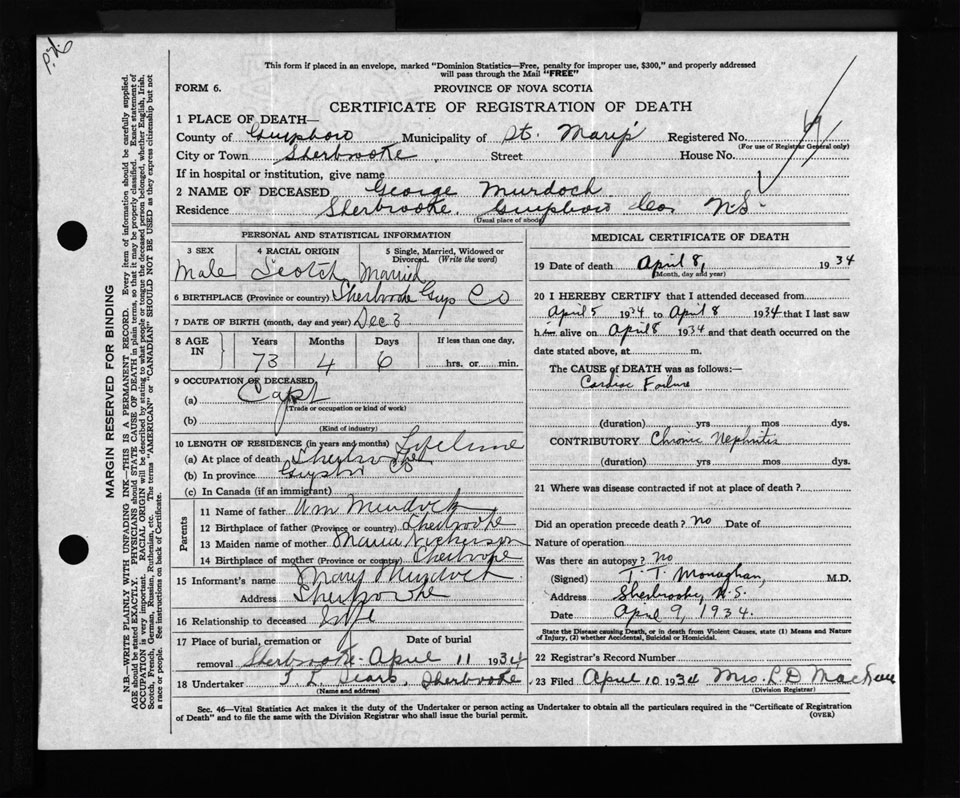 This form if placed in an envelope, marked "Dominion Statistics—Free, penalty for improper use, $300," and properly addressed
will pass through the Mail "FREE"
FORM 6.
PROVINCE OF NOVA SCOTIA
CERTIFICATE OF REGISTRATION OF DEATH
1 PLACE OF DEATH—
County of Guysboro Municipality of St. Mary's Registered No.
(For use of Registrar General only)
City or Town Sherbrooke Street House No.
If in hospital or institution, give name
2 NAME OF DECEASED George Murdoch
Residence Sherbrooke Guysboro Co N.S.
(Usual place of abode)
PERSONAL AND STATISTICAL INFORMATION
3 SEX 4 RACIAL ORIGIN 5 Single, Married, Widowed or
Divorced. (Write the word)
Male Scotch Married
6 BIRTHPLACE (Province or country) Sherbrooke Guys Co
7 DATE OF BIRTH (month, day and year) Dec 3
8 AGE IN Years Months Days If less than one day,
73 4 6 hrs. or min.
9 OCCUPATION OF DECEASED
(a) Capt
(Trade or occupation or kind of work)
(b)
(Kind of industry)
10 LENGTH OF RESIDENCE (in years and months) Lifetime
(a) At place of death Sherbrooke
(b) In province Guysbo Co
(c) In Canada (if an immigrant)
Parents
11 Name of father Wm Murdock
12 Birthplace of father (Province or country) Sherbrooke
13 Maiden name of mother Maria Nickerson
14 Birthplace of mother (Province or country) Sherbrooke
15 Informant's name Mary Murdock
Address Sherbrooke
16 Relationship to deceased Wife
17 Place of burial, cremation or Date of burial
removal Sherbrooke April 11 1934
18 Undertaker Sears, Sherbrooke
(Name and address)
MEDICAL CERTIFICATE OF DEATH
19 Date of death April 8, 1934
(Month, day and year)
20 I HEREBY CERTIFY that I attended deceased from
April 5 1934 to April 8 1934 that I last saw
him alive on April 8 1934 and that death occurred on the
date stated above, at m.
The CAUSE of DEATH was as follows:—
Cardiac Failure
(duration) yrs mos dys.
CONTRIBUTORY Chronic Nephritis
(duration) yrs mos dys.
21 Where was disease contracted if not at place of death?
Did an operation precede death? No Date of
Nature of operation
Was there an autopsy? No
(Signed) T. T. Monaghan, M.D.
Address Sherbrooke, N.S.
Date April 9, 1934.
State the Disease causing Death, or in death from Violent Causes, state (1) Means and Nature
of Injury, (2) whether Accidental, Suicidal or Homicidal.
22 Registrar's Record Number
23 Filed April 10 1934 Mrs.
(Division Registrar)
Sec. 46—Vital Statistics Act makes it the duty of the Undertaker or person acting as Undertaker to obtain all the particulars required in the "Certificate of Registration
of Death" and to file the same with the Division Registrar who shall issue the burial permit. (OVER)
MARGIN RESERVED FOR BINDING
N.B.—WRITE PLAINLY WITH UNFADING INK—THIS IS A PERMANENT RECORD. Every item of information should be carefully supplied.
AGE should be stated EXACTLY. PHYSICIANS should STATE CAUSE OF DEATH in plain terms, so that it may be properly classified. Exact statement of
OCCUPATION is very important. RACIAL ORIGIN will be described by stating to what people or tongue the deceased person belonged, whether English, Irish,
Scotch, French, German, Russian, Ruthenian, etc. The terms "AMERICAN" or "CANADIAN" SHOULD NOT BE USED as they express citizenship but not
a race or people. See instructions on back of Certificate.